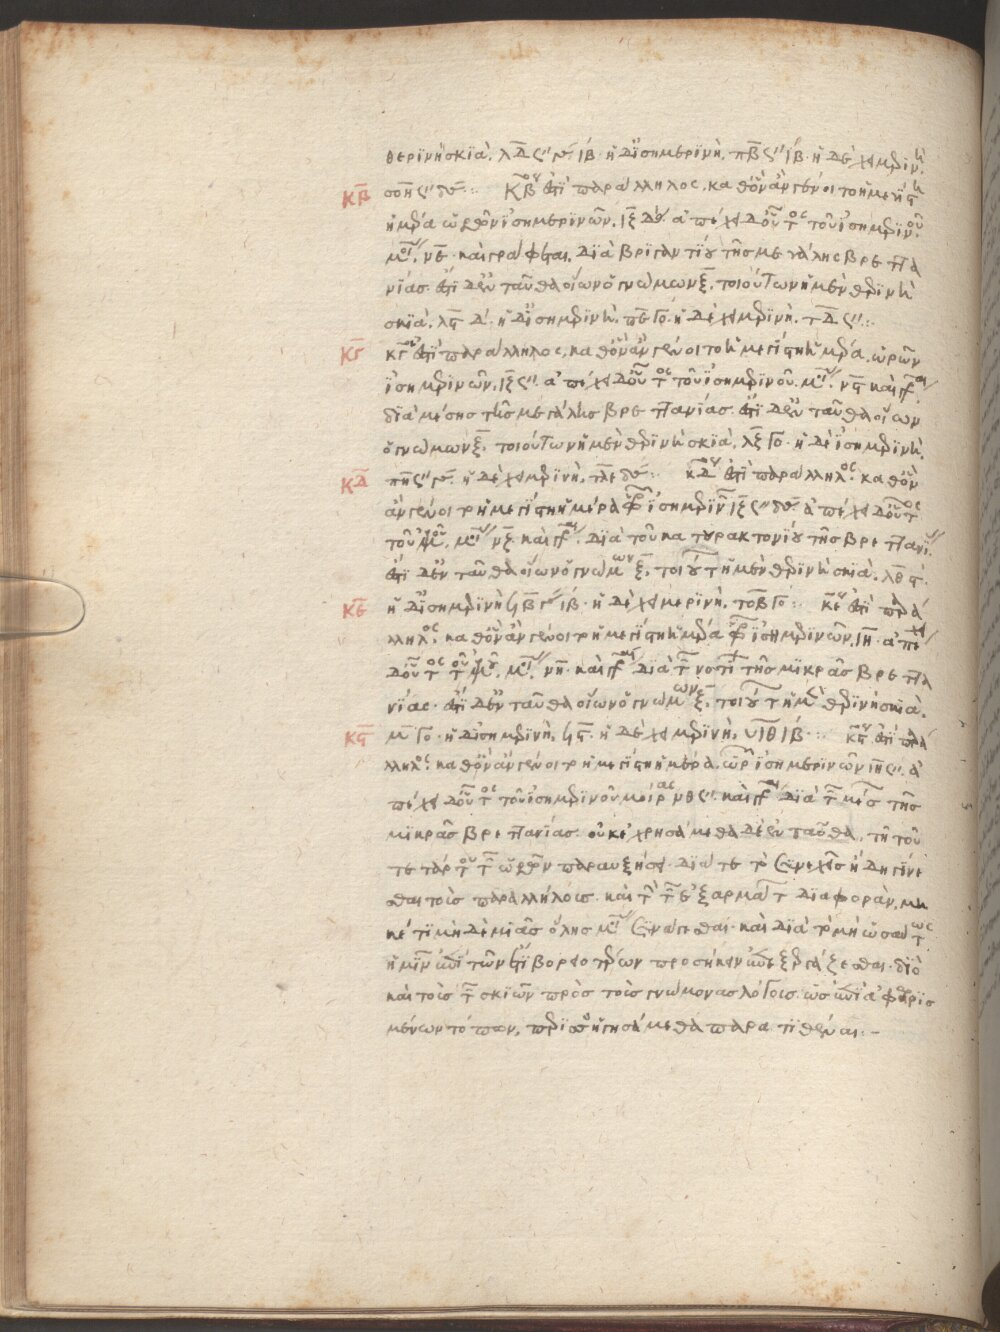 θερινὴ σκιὰ. λδ ϛ″ γ′ ιβ· ἡ δἰσημερινὴ. πβ ϛ″ ιβ· ἡ δὲ χειμεριν(ὴ).
κβ σοη ϛ″ δ′ :· κβ ου ἐστὶ παράλληλος, καθ' ὃν ἂν γένοιτο ἡ μεγίστ(η)
ἡμέρα ὡρῶν ἰσημερινῶν. ιϛ δ′· ἀπέχει δ' οὗτος τοῦ ἰσημερινοῦ
μοί. νε· καὶ γράφεται, διὰ βριγαντίου τῆς μεγάλης βρετα
νίας· ἐπειδὲν ταῦθα οἵων ὁ γνώμων ξ, τοιούτων ἡ μὲν θερινὴ
σκιὰ. λϛ δ′· ἡ δἰσημερινὴ. πε γο· ἡ δὲ χειμερινὴ. τδ ϛ″ :·
κγ κγ ου ἐστὶ παράλληλος, καθ' ὃν ἂν γένοιτο ἡ μεγίστη ἡμέρα. ὡρῶν
ἰσημερινῶν. ιζ ϛ″. ἀπέχει δ' οὗτος τοῦ ἰσημερινοῦ. μοί. νϛ καὶ γρ.
διὰ μέσης τῆς μεγάλης βρετανίας. ἐπειδὲν ταῦθα οἵων
ὁ γνώμων ξ. τοιούτων ἡ μὲν θερινὴ σκιὰ. λζ γο· ἡ δὲ ἰσημερινὴ.
κδ πη ϛ″ γ′. ἡ δὲ χειμερινὴ. τλε δ′ :· κδ ου ἐστὶ παράλληλος. καθ' ὃν
ἂν γένοιτο ἡ μεγίστη ἡμέρα ὡρῶν ἰσημερινῶν ιζ ϛ″ δ′. ἀπέχει δ' οὗτος
τοῦ ἰσημερινοῦ. μοί. νζ. καὶ γρ. διὰ τοῦ κατουρακτονίου τῆς βρετανί.
ἐπειδὲν ταῦθα οἵων ὁ γνώμων ξ. τοιούτ ἡ μὲν θερινὴ σκιὰ. λθ γ′.
κε ἡ δἰσημερινὴ ϟβ γ″ ιβ· ἡ δὲ χειμερινὴ. τοβ γο :· κε ου ἐστὶ παρά
λληλος. καθ' ὃν ἂν γένοιτο ἡ μεγίστη ἡμέρα ὡρῶν ἰσημερινῶν. ιη· ἀπέχει
δ' οὗτος τοῦ ἰσημερινοῦ. μοί. νη· καὶ γρ. διὰ τῶν νοτί τῆς μικρᾶς βρετα
νίας· ἐπειδὲν ταῦθα οἵων ὁ γνώμων ξ. τοιούτ ἡ μὲν θερινὴ σκιὰ.
κϛ μ γο· ἡ δἰσημερινὴ. ϟϛ. ἡ δὲ χειμερινὴ. υιθ ιβ· :· κϛ ου ἐστὶ παρά
λληλος. καθ' ὃν ἂν γένοιτο ἡ μεγίστη ἡμέρα. ὡρῶν ἰσημερινῶν ιη ϛ″. ἀ
πέχει δ' οὗτος τοῦ ἰσημερινοῦ μοίρας νθ ϛ″. καὶ γρ. διὰ τῶν μέσ τῆς
μικρᾶς βρετανίας· οὐκ ἐχρησάμεθα δὲ ἐνταῦθα, τῇ τοῦ
τετάρτου τῶν ὡρῶν παραυξήσει. διά τε τὸ συνεχεῖς ἤδη γίνε
σθαι τοῖς παραλλήλοις. καὶ τὴν τῶν ἐξαρμάτων διαφορὰν, μη
κέτι μηδὲ μιᾶς ὅλης μοί. συνάγεσθαι· καὶ διὰ τὸ μὴ ὡσαύτως
ἡμῖν ἐπὶ τῶν ἔτι βορειοτέρων προσήκειν ἐπεξεργάζεσθαι· διὸ
καὶ τοῖς τῶν σκιῶν πρὸς τοῖς γνώμονας λόγοις. ὡς ἐπὶ ἀφωρισ
μένων τόπων, περισσὸν ἡγησάμεθα παρατιθέναι :-